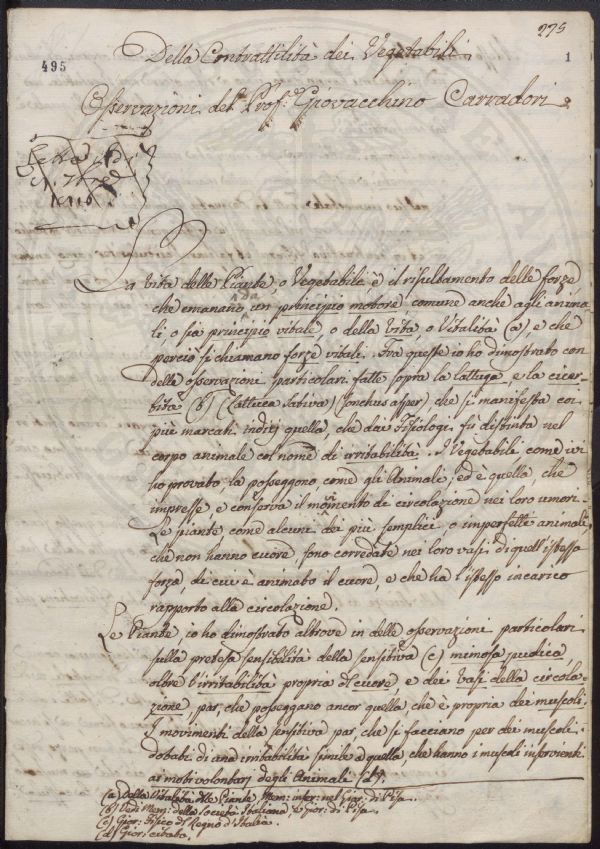 225
495
1
Della Contrattilità dei Vegetabili
Osservazioni del Prof: Giovacchino Carradori
La vita delle Piante, o Vegetabili è il risultamento delle forze,
che emanano da un principio motore, comune anche agli anima-
li, o sia principio vitale, o della Vita, o Vitalità (a) e che
perciò si chiamano forze vitali. Fra queste io ho dimostrato con
delle osservazioni particolari fatte sopra la lattuga, e la cicer-
bita (b) (lattuca sativa) (sonchus asper) che si manifesta coi
più marcati indizj quella, che dai Fisiologi fù distinta nel
corpo animale col nome di irritabilità. I Vegetabili come ivi
ho provato, la posseggono come gli Animali, ed è quella, che
impresse, e conserva il movimento di circolazione nei loro umori.
Le piante come alcuni dei più semplici, o imperfetti animali,
che non hanno cuore, sono corredate nei loro vasi di quell'istessa
forza, di cui è animato il cuore, e che ha l'istesso incarico
rapporto alla circolazione.
Le Piante, io ho dimostrato altrove in delle osservazioni particolari
sulla pretesa sensibilità della sensitiva (c) mimosa pudica,
oltre l'irritabilità propria del cuore, e dei vasi della circola-
zione par, che posseggano ancor quella, che è propria dei muscoli.
I movimenti della sensitiva par, che si facciano per dei muscoli,
dotati di una irritabilità simile a quella, che hanno i muscoli inservienti
ai moti volontarj degli Animali (d).
(a) Della Vitalità delle Piante Mem: inser: nel Gior: di Pisa.
(b) Vedi Mem: della Società Italiana, e Gior: di Pisa.
(c) Gior: Fisico del Regno d'Italia.
(d) Gior: citato.